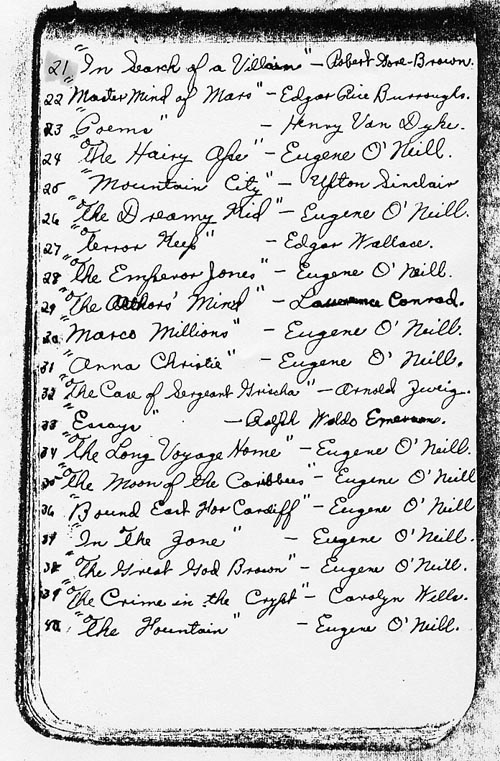 21 "In Search of a Villain" - Robert Gore-Brown.
22 Master Mind of Mars" - Edgar Rice Burroughs.
23 "Poems" - Henry Van Dyke.
24 "The Hairy Ape" - Eugene O'Neill.
25 "Mountain City" - Upton Sinclair
26 "The Dreamy Kid" - Eugene O'Neill.
27 "Terror Keep" - Edgar Wallace.
28 "The Emperor Jones" - Eugene O'Neill.
29 "The Authors' Mind" - Lawrence Conrad.
30 "Marco Millions" - Eugene O'Neill.
31 "Anna Christie" - Eugene O'Neill.
32 "The Case of Sergeant Grischa" - Arnold Zweig.
33 "Essays" - Ralph Waldo Emerson.
34 "The Long Voyage Home" - Eugene O'Neill.
35 "The Moon of the Caribbees" - Eugene O'Neill
36 "Bound East For Cardiff" - Eugene O'Neill
37 "In The Zone" - Eugene O'Neill.
38 "The Great God Brown" - Eugene O'Neill.
39 "The Crime in the Crypt" - Carolyn Wells.
40 "The Fountain" - Eugene O'Neill.